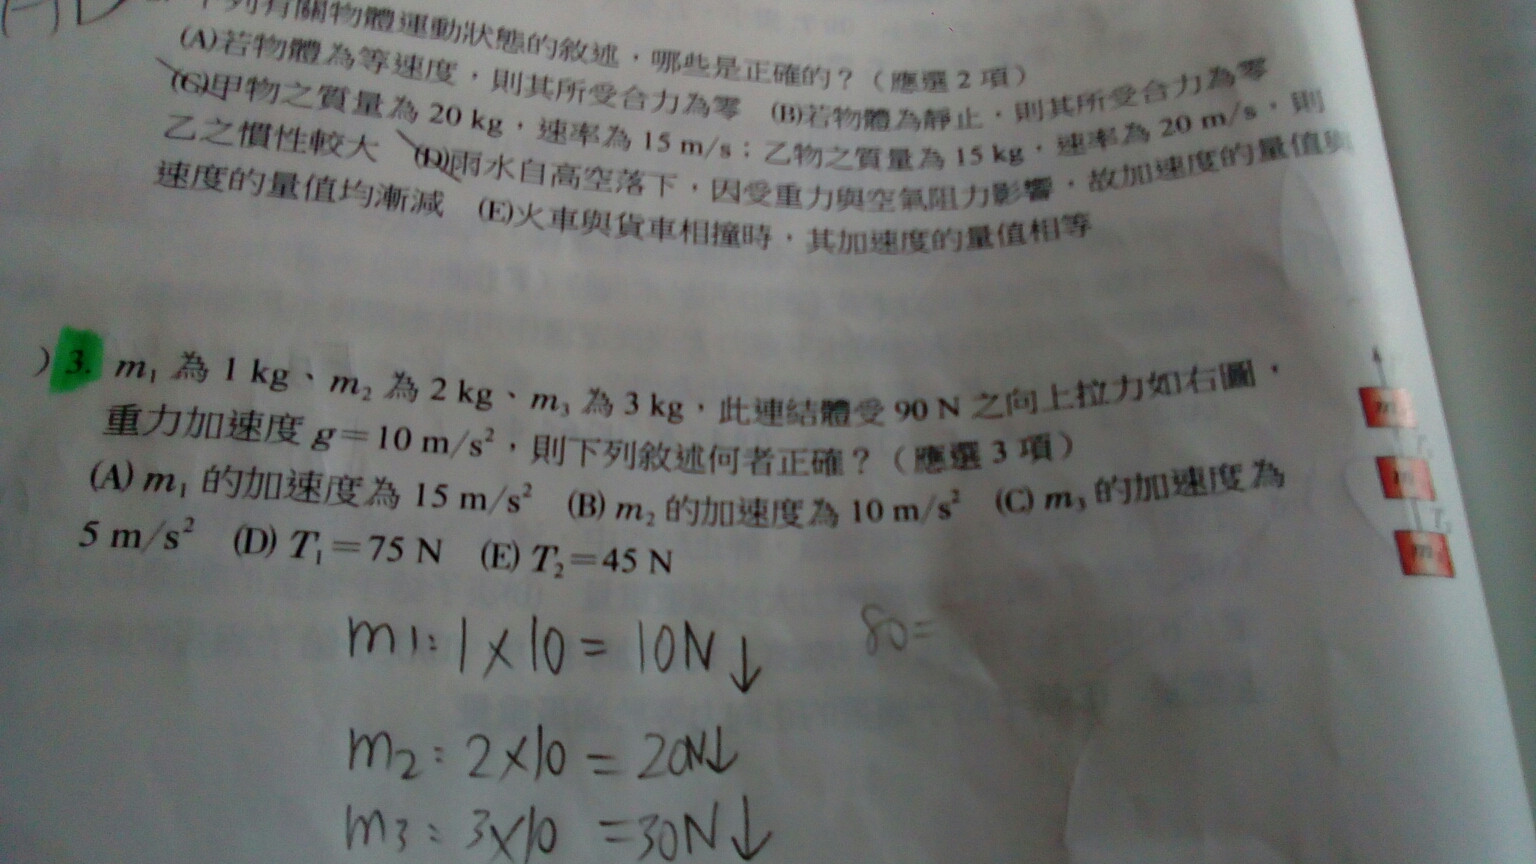 下列有關物體運動狀態的敘述，哪些是正確的？（應選 2 項）
(A)若物體為等速度，則其所受合力為零 (B)若物體為靜止，則其所受合力為零
(C)甲物之質量為 20 kg，速率為 15 m/s；乙物之質量為 15 kg，速率為 20 m/s，則
乙之慣性較大 (D)雨水自高空落下，因受重力與空氣阻力影響，故加速度的量值與
速度的量值均漸減 (E)火車與貨車相撞時，其加速度的量值相等
) 3. m₁ 為 1 kg、m₂ 為 2 kg、m₃ 為 3 kg，此連結體受 90 N 之向上拉力如右圖，
重力加速度 g＝10 m/s²，則下列敘述何者正確？（應選 3 項）
(A) m₁ 的加速度為 15 m/s² (B) m₂ 的加速度為 10 m/s² (C) m₃ 的加速度為
5 m/s² (D) T₁＝75 N (E) T₂＝45 N
m1: 1×10 = 10N↓
80=
m2: 2×10 = 20N↓
m3: 3×10 =30N↓